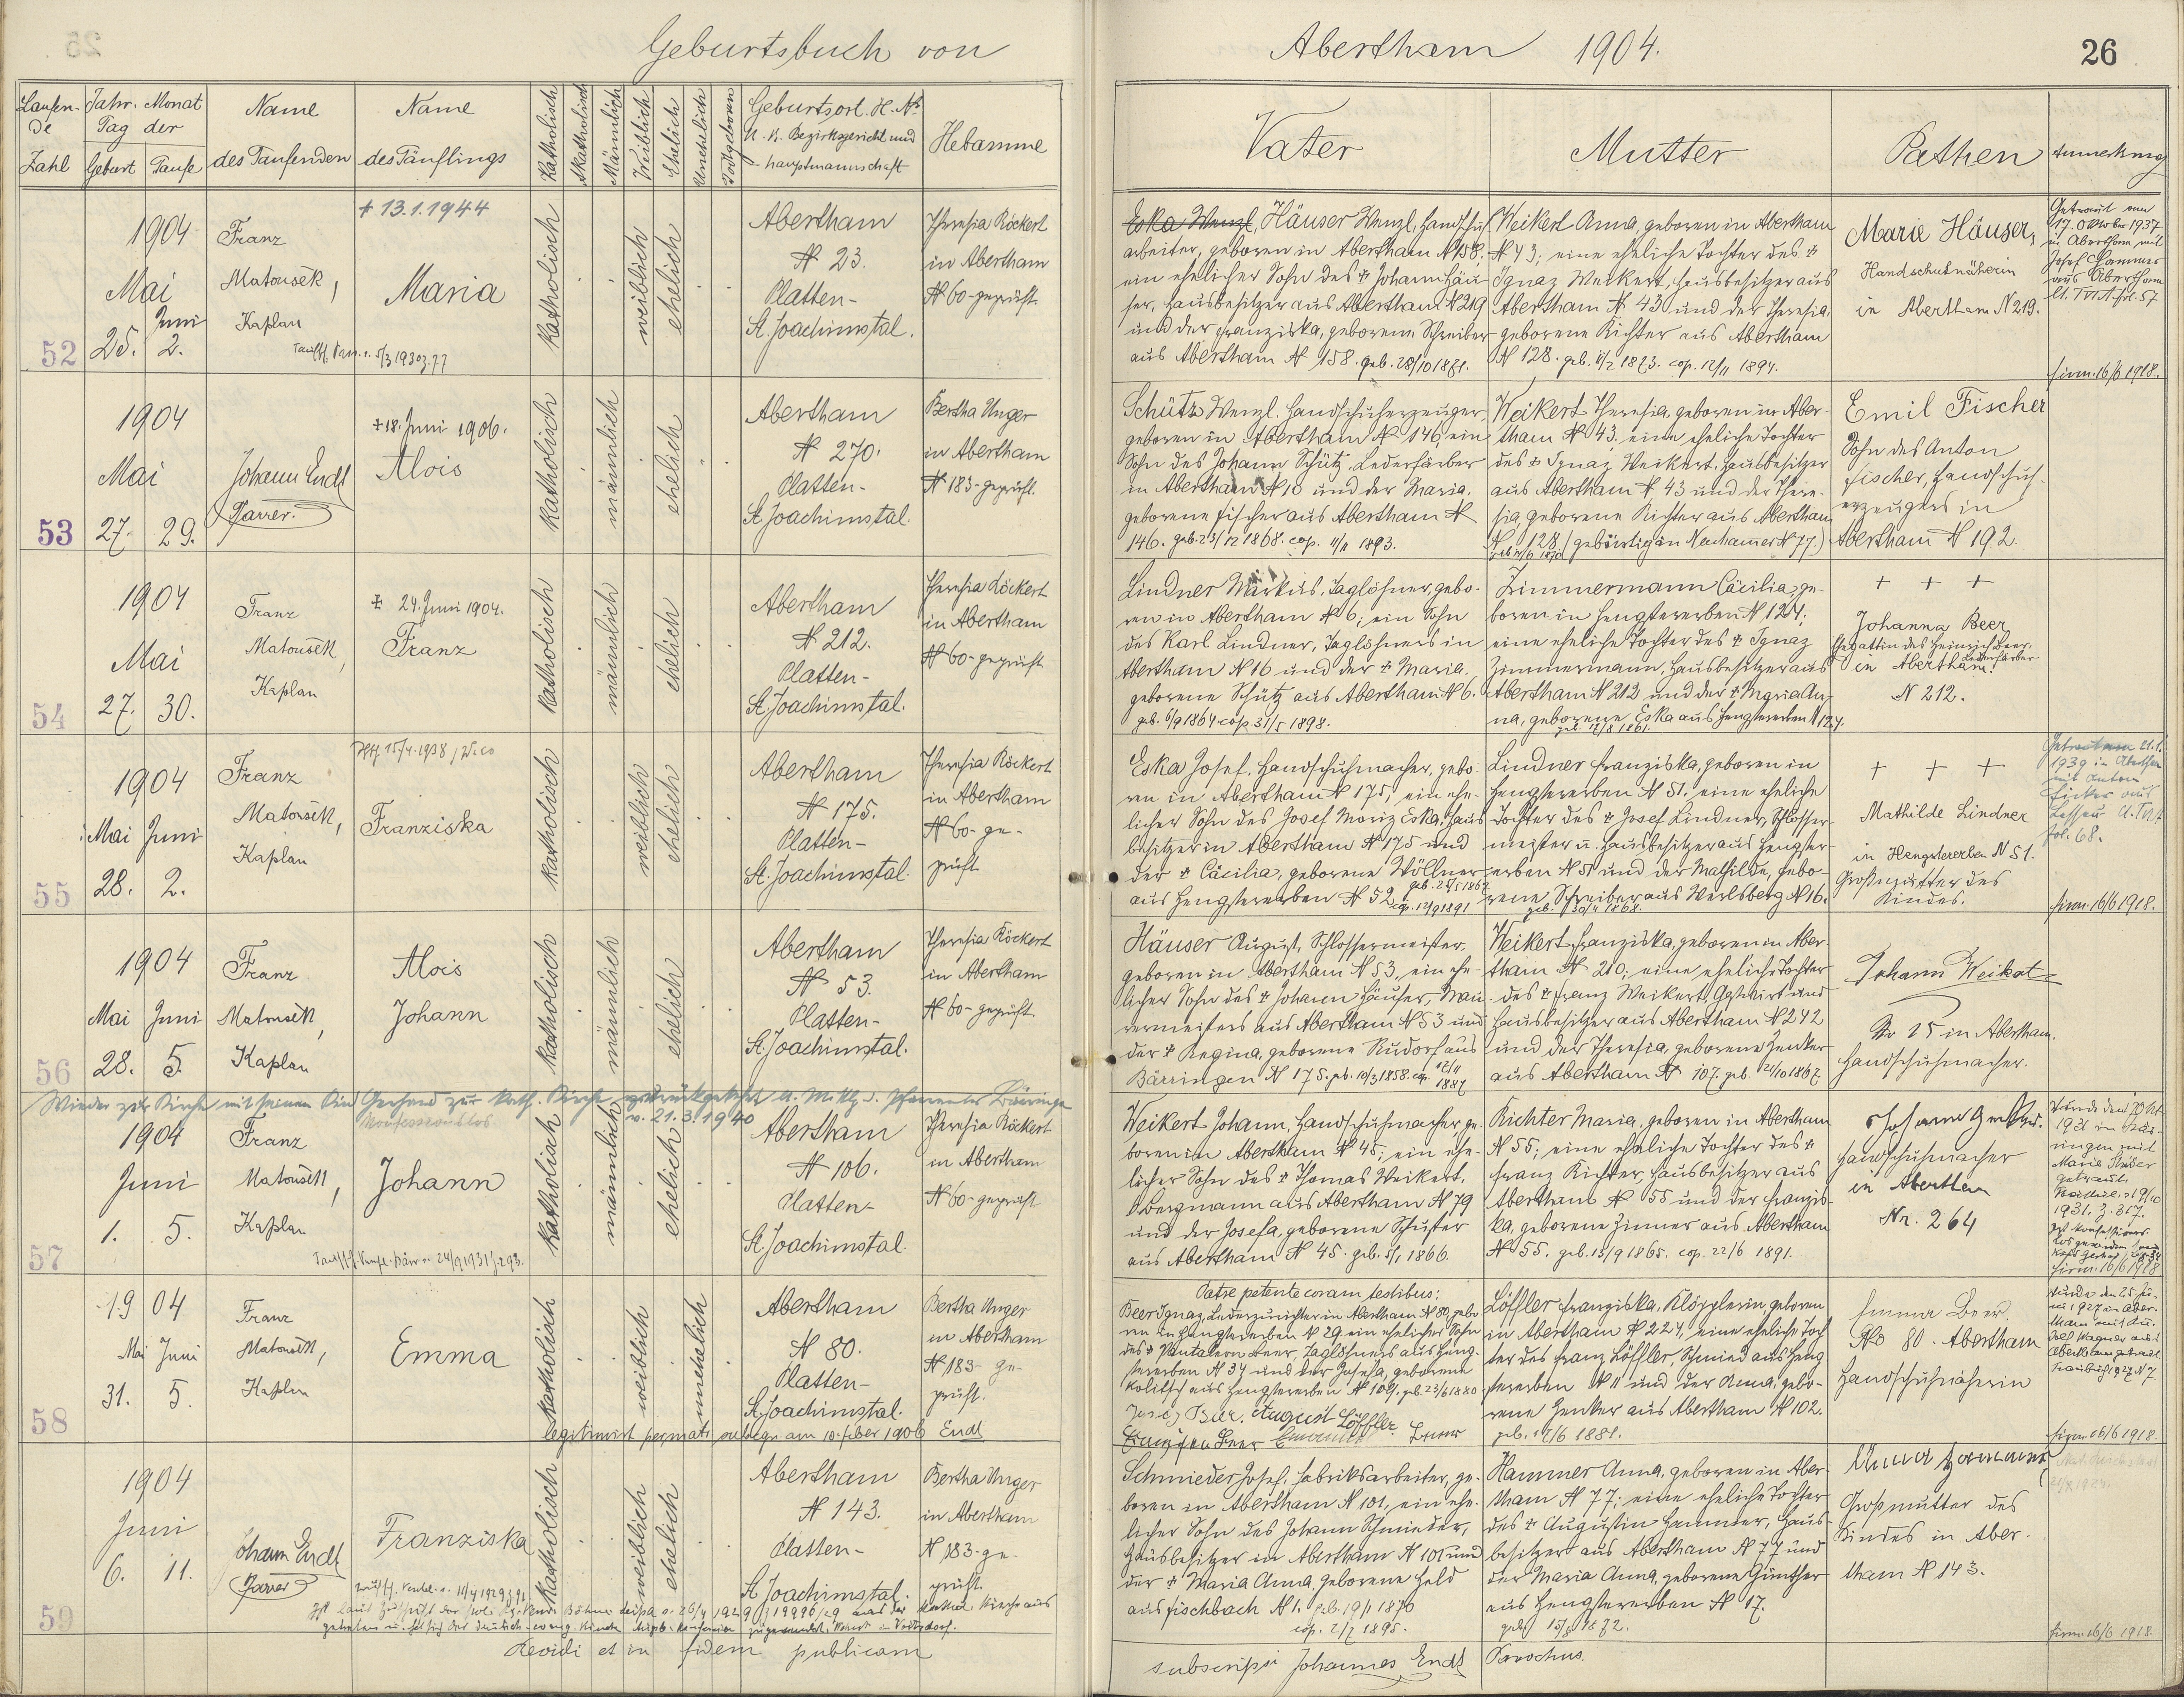 Geburtsbuch von
Abertham 1904.
26
Laufen-
de
Zahl
Jahr. Monat
Tag der
Geburt
Taufe
Name
des Taufenden
Name
des Täuflings
Katholisch
Akatholisch
Männlich
Weiblich
Ehelich
Unehelich
Todtgeboren
Geburtsort. H. N°
K. K. Bezirksgericht und
- hauptmannschaft
Hebamme
Vater
Mutter
Pathen
Anmerkung
52
1904
Mai
Juni
25. 2.
Franz
Matousek,
Kaplan
+ 13.1.1944
Maria
katholisch
weiblich
ehelich
Abertham
N 23.
Platten-
St. Joachimstal.
Theresia Röckert
in Abertham
N 60-geprüft.
Eska Wenzl, Häuser Wenzl, Handschuh-
arbeiter, geboren in Abertham N 158.
ein ehelicher Sohn des + Johann Häu
ser, Hausbesitzer aus Abertham N 219
und der Franziska, geborene Schreiber
aus Abertham N 158. geb. 28/10 1871.
Weikert Anna, geboren in Abertham
N 43; eine eheliche Tochter des +
Ignaz Weikert, Hausbesitzer aus
Abertham N 43 und der Theresia,
geborene Richter aus Abertham
N 128. cop. 12/11 1894.
Marie Häuser,
Handschuhnäherin
in Abertham N 219.
Getraut am
17. Oktober 1937
in Abertham mit
Josef
aus Abertham
firm. 16/6 1918.
53
1904
Mai
27. 29.
Johann Endt
Pfarrer.
+ 18. Juni 1906.
Alois
katholisch
männlich
ehelich
Abertham
N 270.
Platten-
St. Joachimstal.
Bertha Unger
in Abertham
N 183-geprüft.
Schütz Wenzl. Handschuherzeuger,
geboren in Abertham N 146, ein
Sohn des Johann Schütz, Lederfärber
in Abertham N 10 und der Maria,
geborene Fischer aus Abertham N
146. geb. 23/12 1868. cop. 11/11 1893.
Weikert Theresia, geboren in Aber-
tham N 43. eine eheliche Tochter
des + Ignaz Weikert, Hausbesitzer
aus Abertham N 43 und der There-
sia, geborene Richter aus Abertham
N 128 (gebürtig in Neuhammer N 77.)
Emil Fischer
Sohn des Anton
Fischer, Handschuh-
erzeugers in
Abertham N 192.
54
1904
Mai
27. 30.
Franz
Matousek,
Kaplan
+ 24. Juni 1904.
Franz
katholisch
männlich
ehelich
Abertham
N 212.
Platten-
St. Joachimstal.
Theresia Röckert
in Abertham
N 60-geprüft
Lindner Markus, Taglöhner, gebo-
ren in Abertham N 6; ein Sohn
des Karl Lindner, Taglöhners in
Abertham N 16 und der + Maria,
geborene Schütz aus Abertham N 6.
geb. 6/9 1864 cop. 31/5 1898.
Zimmermann Cäcilia, ge-
boren in Hengstererben N 124;
eine eheliche Tochter des + Ignaz
Zimmermann, Hausbesitzer aus
Abertham N 212 und der + Maria An-
na, geborene Eska aus Hengstererben N 124.
+ + +
Johanna Beer
Ehegattin des Heinrich Beer,
Lederfärber
in Abertham
N 212.
55
1904
Mai Juni
28. 2.
Franz
Matousek,
Kaplan
Franziska
katholisch
weiblich
ehelich
Abertham
N 175.
Platten-
St. Joachimstal.
Theresia Röckert
in Abertham
N 60-ge-
prüft
Eska Josef, Handschuhmacher, gebo-
ren in Abertham N 175, ein ehe-
licher Sohn des Josef Moriz Eska, Haus-
besitzer in Abertham N 175 und
der + Cäcilia, geborene Wöllner
aus Hengstererben N 52.
cop. 12/9 1891
Lindner Franziska, geboren in
Hengstererben N 51. eine eheliche
Tochter des + Josef Lindner, Schlosser-
meister u. Hausbesitzer aus Hengster-
erben N 51 und der Mathilde, gebo-
rene Schreiber aus Werlsberg N 16.
+ + +
Mathilde Lindner
in Hengstererben N 51.
Großmutter des
Kindes.
fol. 68.
firm. 16/6 1918.
56
1904
Mai Juni
28. 5.
Franz
Matousek,
Kaplan
Alois
Johann
katholisch
männlich
ehelich
Abertham
N 53.
Platten-
St. Joachimstal.
Theresia Röckert
in Abertham
N 60-geprüft
Häuser August, Schlossermeister,
geboren in Abertham N 53, ein ehe-
licher Sohn des + Johann Häuser, Mau-
rermeisters aus Abertham N 53 und
der + Regina, geborene Rudorf aus
Bärringen N 175. geb. 10/3 1858. cop. 12/11
1887
Weikert Franziska, geboren in Aber-
tham N 210; eine eheliche Tochter
des + Franz Weikert, Gastwirt und
Hausbesitzer aus Abertham N 242
und der Theresia, geborene Zenker
aus Abertham N 107. geb. 24/10 1867
Johann Weikert
Nr 25 in Abertham.
Handschuhmacher.
Wieder zur Kirche mit seinem Kind Gerhard zur kath. Kirche zurückgekehrt
v. 21.3.1940
57
1904
Juni
1. 5.
Franz
Matousek,
Kaplan
Konfessionslos
Johann
katholisch
männlich
ehelich
Abertham
N 106.
Platten-
St. Joachimstal.
Theresia Röckert
in Abertham
N 60-geprüft
Weikert Johann, Handschuhmacher, ge-
boren in Abertham N 45; ein ehe-
licher Sohn des + Thomas Weikert,
Bergmann aus Abertham N 79
und der Josefa, geborene Schuster
aus Abertham N 45. geb. 5/1 1866.
Richter Maria, geboren in Abertham
N 55; eine eheliche Tochter des +
Franz Richter, Hausbesitzer aus
Abertham N 55 und der Franzis-
ka, geborene Zinner aus Abertham
N 55. geb. 15/9 1865. cop. 22/6 1891.
Handschuhmacher
in Abertham
Nr. 264
1931. Z. 317.
firm. 16/6 1918
58
1904
Mai Juni
31. 5.
Franz
Matousek,
Kaplan
Emma
katholisch
weiblich
unehelich
Abertham
N 80.
Platten-
St. Joachimstal.
Bertha Unger
in Abertham
N 183 ge-
prüft.
Patre petente coram testibus:
Beer Ignaz, Lederzurichter in Abertham N 80, gebo
ren in Hengstererben N 29, ein ehelicher Sohn
des + Pantaleon Beer, Taglöhners aus Heng-
stererben N 34 und der Josefa, geborene
Kolitsch aus Hengstererben N 109. geb. 23/6 1880
August Löffler
Löffler Franziska, Klöpplerin, geboren
in Abertham N 224, eine eheliche Toch
ter des Franz Löffler, Schmied aus Heng
stererben N 11 und der Anna, gebo-
rene Zenker aus Abertham N 102.
geb. 17/6 1881.
Emma Beer
No 80. Abertham
Handschuhnäherin
firm. 16/6 1918.
59
1904
Juni
6. 11.
Johann Endt
Pfarrer
Franziska
katholisch
weiblich
ehelich
Abertham
N 143.
Platten-
St. Joachimstal.
Bertha Unger
in Abertham
N 183-ge-
prüft.
Schmieder Josef, Fabriksarbeiter, ge-
boren in Abertham N 101, ein ehe-
licher Sohn des Johann Schmieder,
Hausbesitzer in Abertham N 101 und
der + Maria Anna, geborene Held
aus Fischbach N 1. geb. 19/11 1870
cop. 2/7 1895.
Hammer Anna, geboren in Aber-
tham N 77; eine eheliche Tochter
des + Augustin Hammer, Haus-
besitzer aus Abertham N 77 und
der Maria Anna, geborene Günther
aus Hengstererben N 17.
geb. 15/8 1872.
Großmutter des
Kindes in Aber-
tham N 143.
firm. 16/6 1918.
Revidi et in fidem publicam
subscripsi Johannes Endt Parochus.